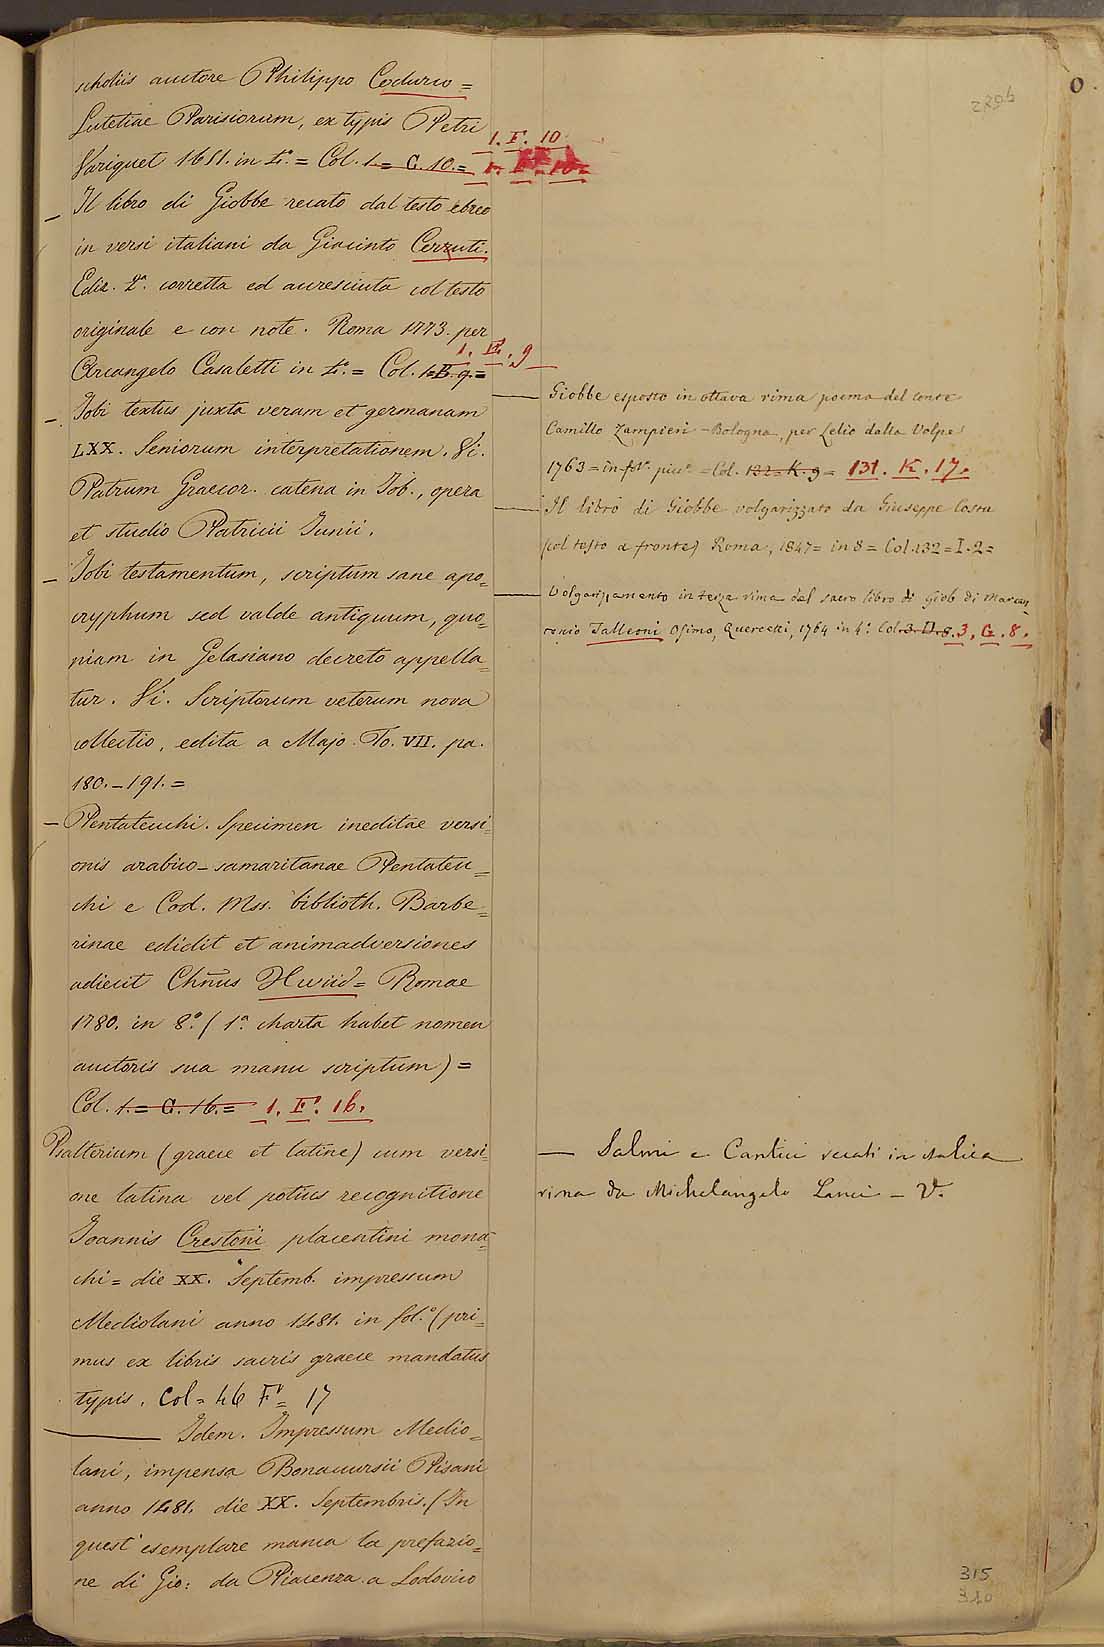 scholiis auctore Philippo Codurco =
Lutetiae Parisiorum, ex typis Petri
1. F. 10
Variquet 1651. in 4.° = Col. 1. = C. 10. =
— Il libro di Giobbe recato dal testo ebreo
in versi italiani da Giacinto Cerruti.
Ediz. 2.ª corretta ed accresciuta col testo
originale e con note. Roma 1773. per
1. F. 9
Arcangelo Casaletti in 4.° = Col. 1. B. 9. =
— Jobi textus juxta veram et germanam
LXX. Seniorum interpretationem. Vi.
Patrum Graecor. catena in Job., opera
et studio Patricii Junii.
— Jobi testamentum, scriptum sane apo=
cryphum sed valde antiquum, quo=
niam in Gelasiano decreto appella=
tur. Vi. Scriptorum veterum nova
collectio, edita a Majo. To. VII. pa.
180. – 191. =
— Pentateuchi. Specimen ineditae versi=
onis arabico-samaritanae Pentateu=
chi e Cod. Mss. biblioth. Barbe=
rinae edidit et animadversiones
adiecit Chn̄us Hwiid = Romae
1780. in 8.° (1.ª charta habet nomen
auctoris sua manu scriptum) =
Col. 1. = C. 16. = 1. F. 16.
Psalterium (graece et latine) cum versi=
one latina vel potius recognitione
Joannis Crestoni placentini mona=
chi = die XX. Septemb. impressum
Mediolani anno 1481. in fol.° (pri=
mus ex libris sacris graece mandatus
typis. Col = 46 F = 17
—— Idem. Impressum Medio=
lani, impensa Bonacursii Pisani
anno 1481. die XX. Septembris. (In
quest' esemplare manca la prefazio=
ne di Gio: da Piacenza a Lodovico
— Giobbe esposto in ottava rima poema del conte
Camillo Zampieri – Bologna, per Lelio dalla Volpe
1763 = in fol. picc.° = Col. 132 = K. 9 = 131. K. 17.
— Il libro di Giobbe volgarizzato da Giuseppe Costa
(col testo a fronte) Roma, 1847 = in 8 = Col. 132 = I. 2 =
— Volgarizzamento in terza rima del sacro libro di Giob di Marcan
tonio Talleoni Osimo, Quercetti, 1764 in 4.° Col. 3. D. 8. 3. G. 8.
— Salmi e Cantici recati in italica
rima da Michelangelo Lanci – V.
315
310